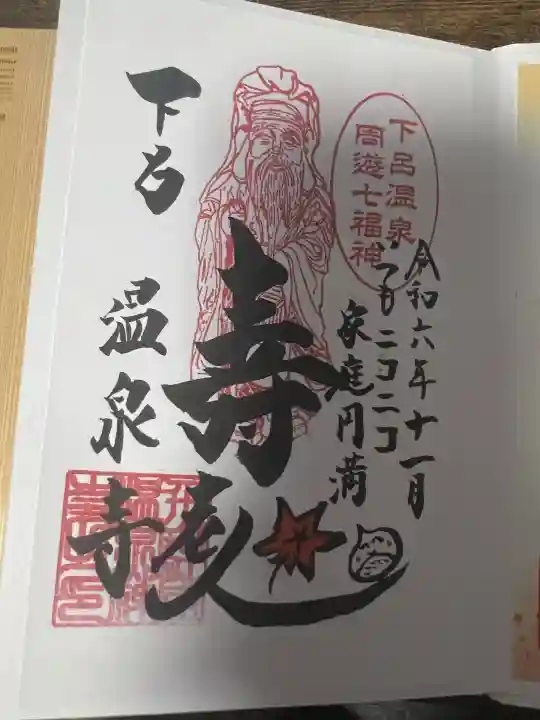 下呂温泉
周遊七福神
令和六年十一月
ニコニコ
家庭円満
寿老人
下呂
温泉寺